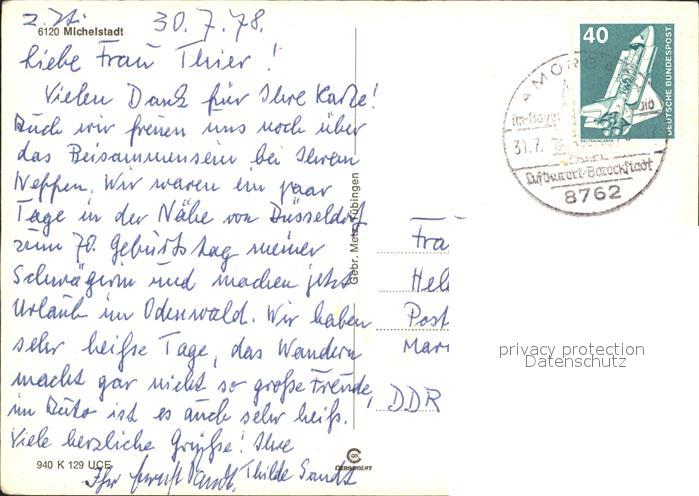 z. Zt. 30.7.78.
6120 Michelstadt
Liebe Frau Thier!
Vielen Dank für Ihre Karte!
Auch wir freuen uns noch über
das Beisammensein bei Ihrem
Neffen. Wir waren ein paar
Tage in der Nähe von Düsseldorf
zum 70. Geburtstag meiner
Schwägerin und machen jetzt
Urlaub im Odenwald. Wir haben
sehr heiße Tage, das Wandern
macht gar nicht so große Freude,
im Auto ist es auch sehr heiß.
Viele herzliche Grüße! Ihre
Thilde Sandt
Ihr
940 K 129 UCE
Gebr. Metz, Tübingen
40
DEUTSCHE BUNDESPOST
AMORBACH
31.7.
Luftkurort-Barockstadt
8762
Fra
Hel
Post
Mar
DDR
privacy protection
Datenschutz